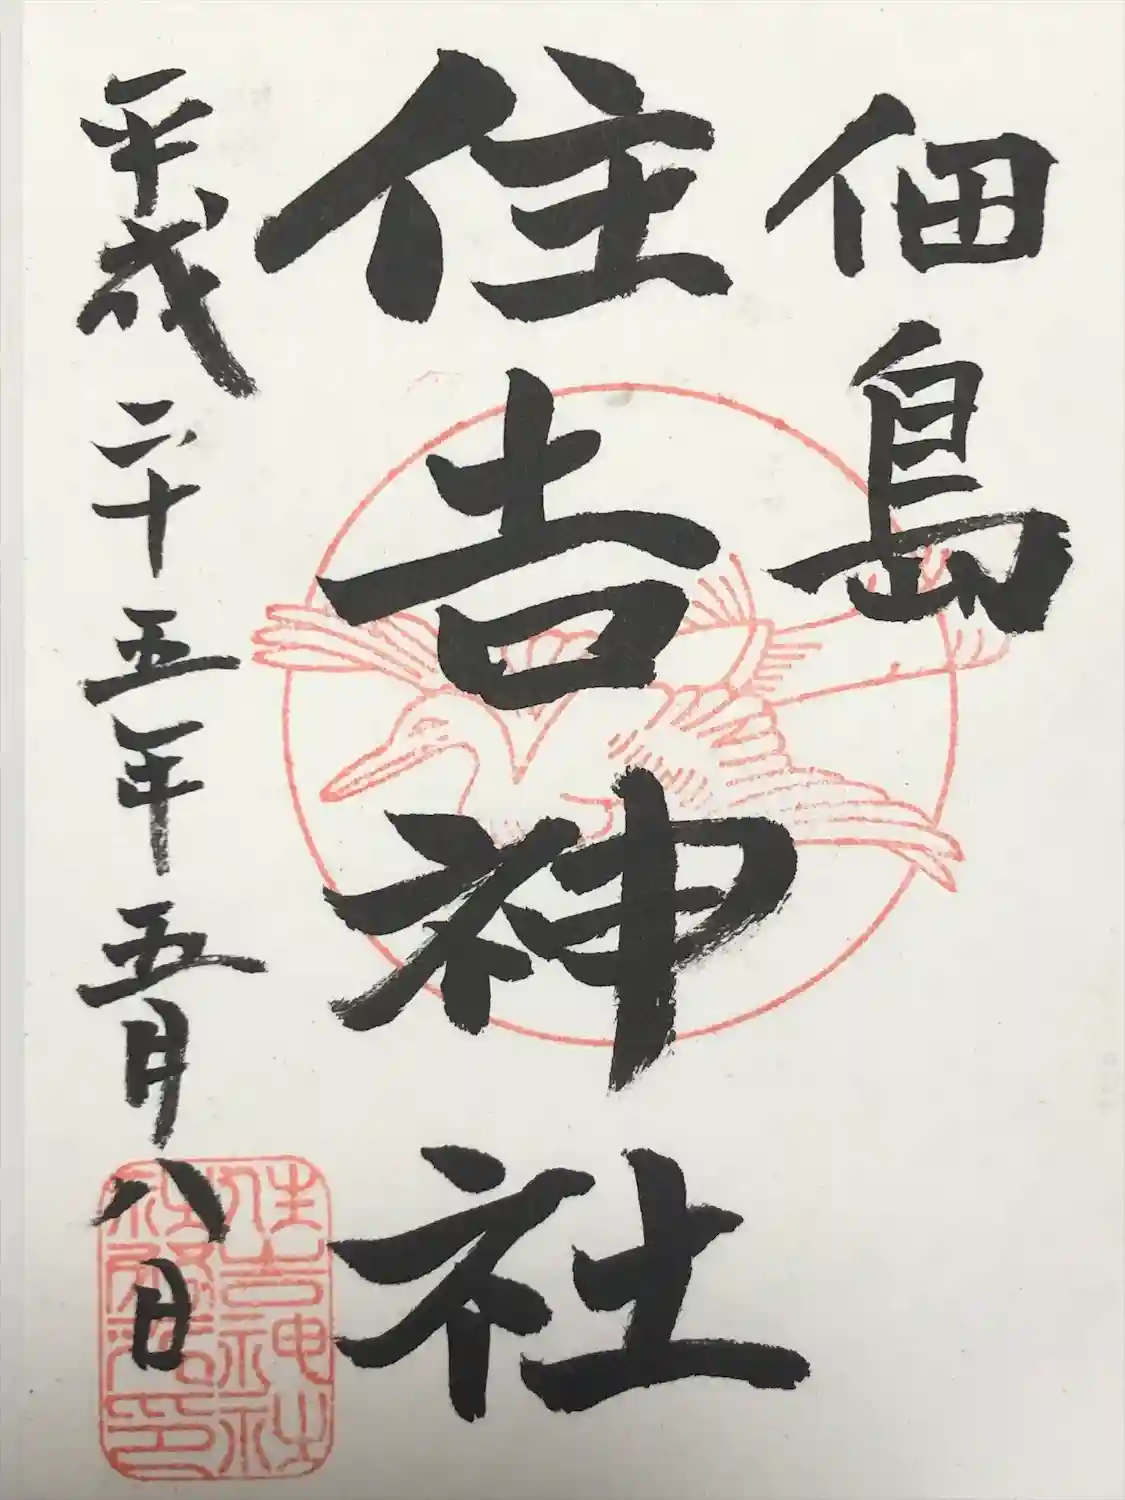 佃島
住吉神社
平成二十五年五月八日
住吉神社
社務所印